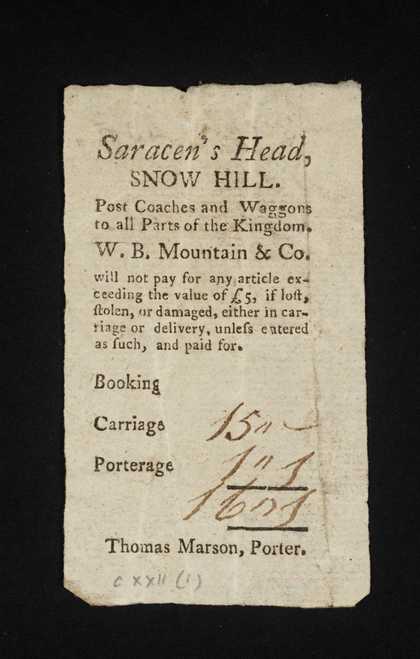 Saracen's Head,
SNOW HILL.
Post Coaches and Waggons
to all Parts of the Kingdom.
W. B. Mountain & Co.
will not pay for any article ex-
ceeding the value of £5, if loſt,
ſtolen, or damaged, either in car-
riage or delivery, unleſs entered
as ſuch, and paid for.
Booking
Carriage 15 " -
Porterage 1 " 1
16 " 1
Thomas Marson, Porter.
c xxii (1)